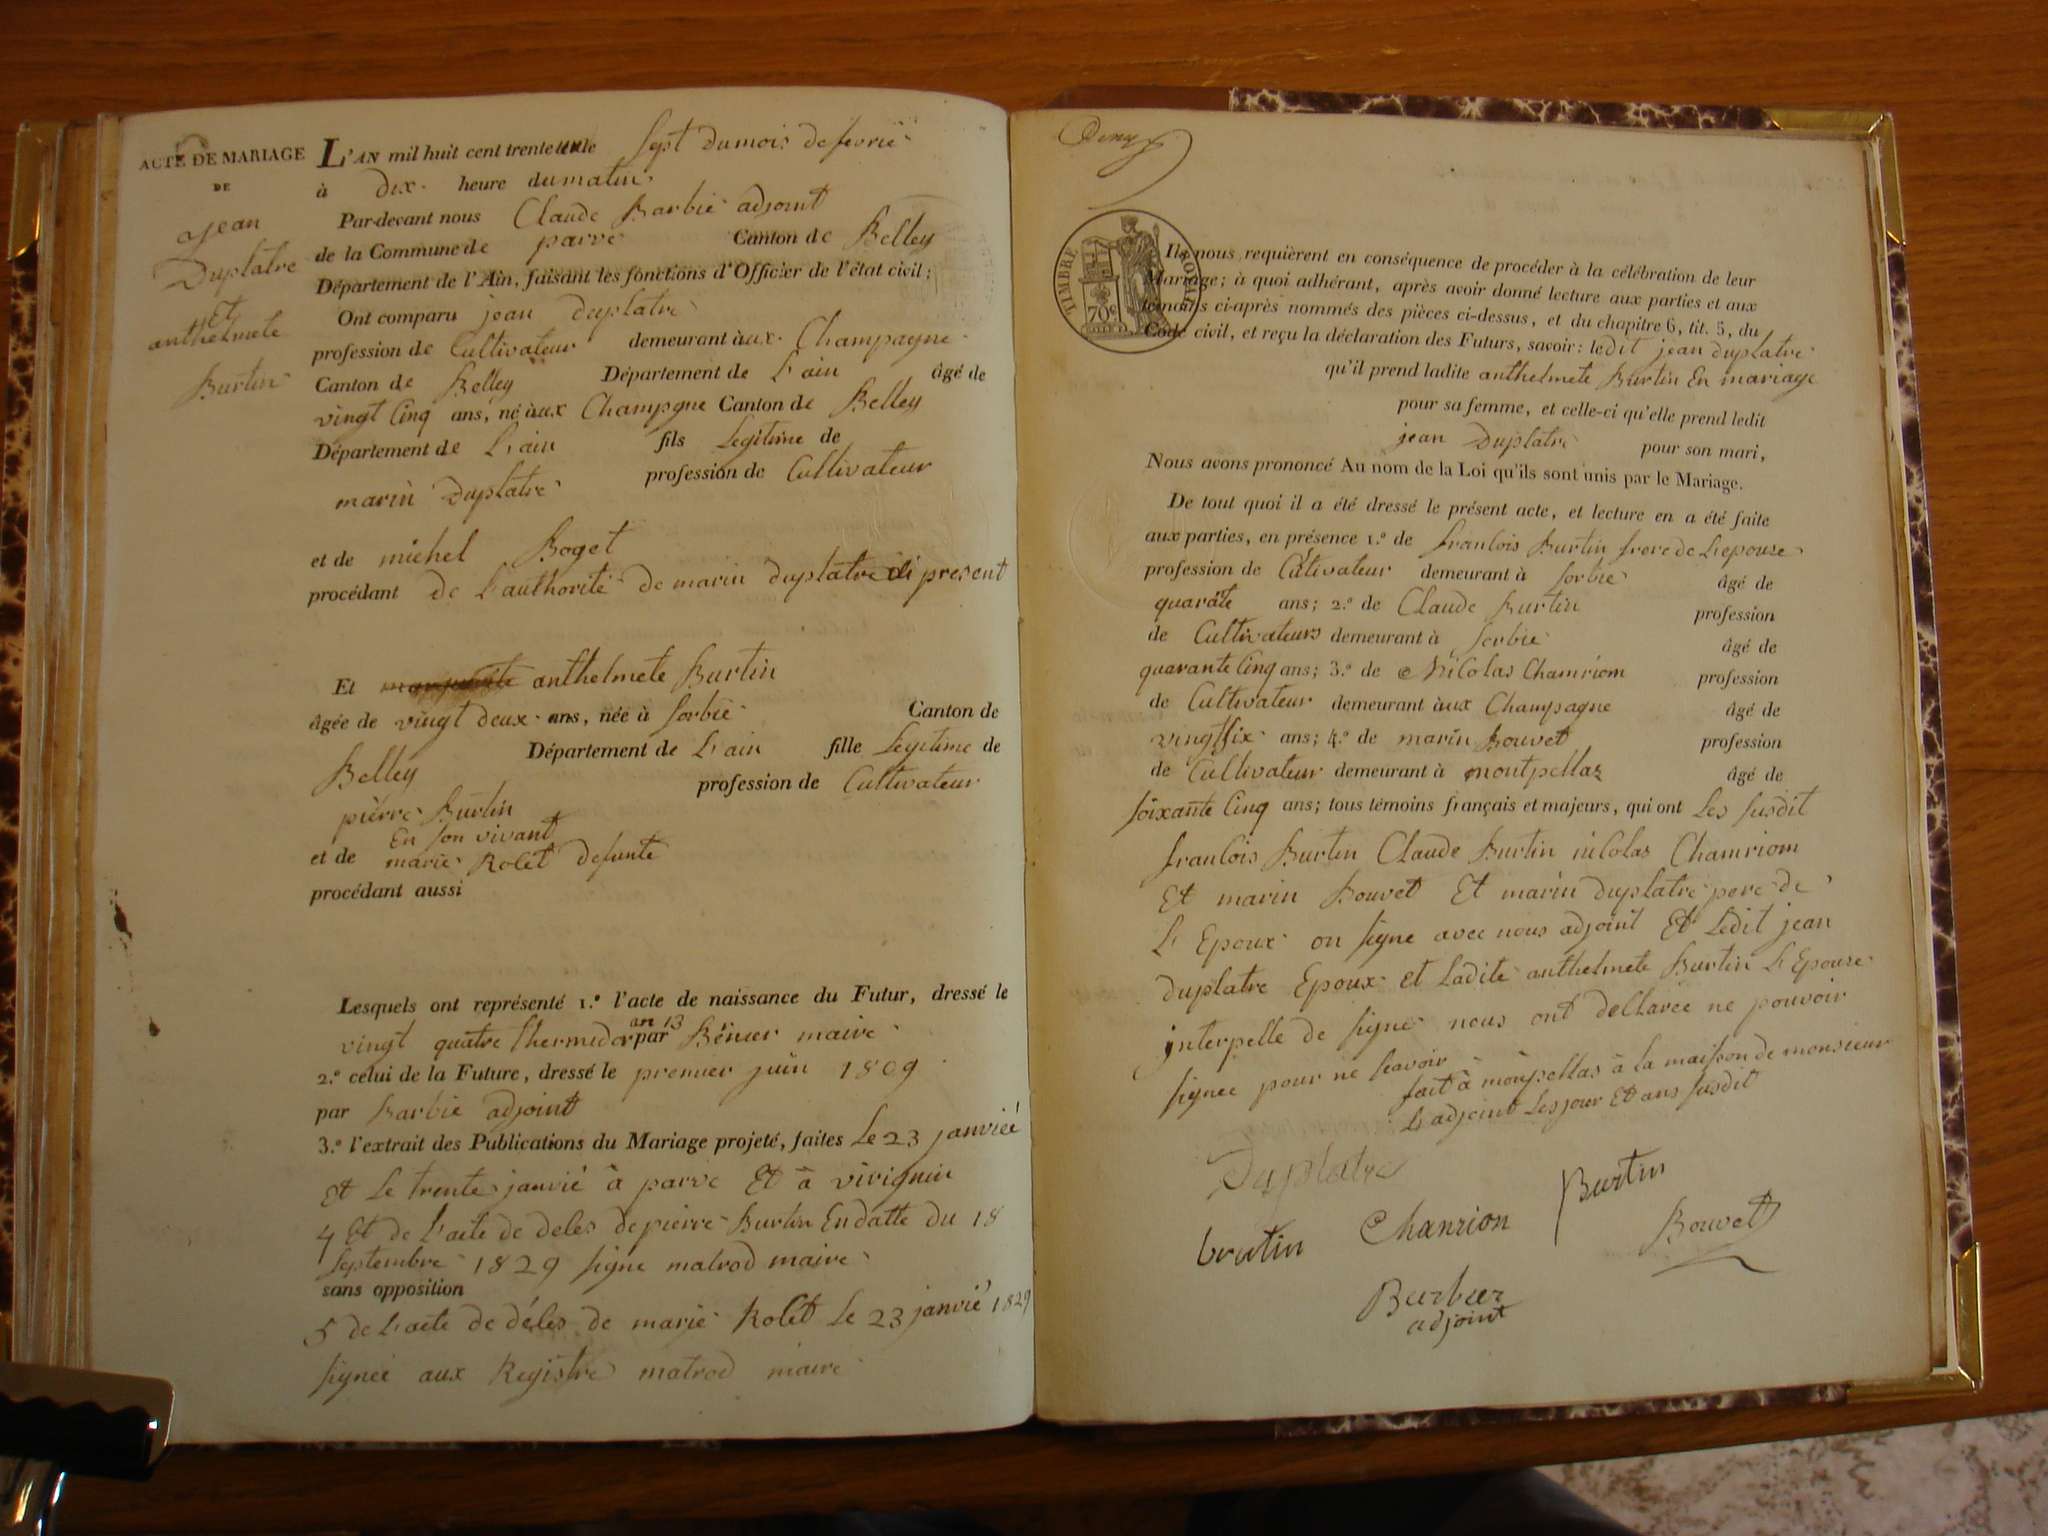 ACTE DE MARIAGE
DE
jean
Duplatre
et
anthelmete
Burtin
L'AN mil huit cent trente un le sept du mois de fevrié
à dix heure du matin
Par-devant nous Claude Barbié adjoint
de la Commune de parve Canton de Belley
Département de l'Ain, faisant les fonctions d'Officier de l'état civil;
Ont comparu jean duplatre
profession de Cultivateur demeurant à ux Champagne
Canton de Belley Département de L'ain âgé de
vingt Cinq ans, né à ux Champgne Canton de Belley
Département de L'ain fils Legitime de
marin Duplatre profession de Cultivateur
et de michel Boget
procédant de L'authorité de marin duplatre ci present
Et anthelmete Burtin
âgée de vingt deux ans, née à sorbié Canton de
Belley Département de L'ain fille Legitime de
pierre Burtin profession de Cultivateur
En son vivant
et de marie Rolet defunte
procédant aussi
Lesquels ont représenté 1.º l'acte de naissance du Futur, dressé le
vingt quatre thermidor an 13 par Bernier maire
2.º celui de la Future, dressé le premier juin 1809
par Barbie adjoint
3.º l'extrait des Publications du Mariage projeté, faites Le 23 janvié
Et Le trente janvié à parve Et à virignin
4 Et de L'acte de deles de pierre Burtin En datte du 18
septembre 1829 signe matrod maire
sans opposition
5 de L'acte de déles de marie Rolet Le 23 janvié 1829
signeé aux Registre matrod maire
TIMBRE ROYAL
70c
Ils nous requièrent en conséquence de procéder à la célébration de leur
Mariage; à quoi adhérant, après avoir donné lecture aux parties et aux
témoins ci-après nommés des pièces ci-dessus, et du chapitre 6, tit. 5, du
Code civil, et reçu la déclaration des Futurs, savoir: ledit jean duplatre
qu'il prend ladite anthelmete Burtin En mariage
pour sa femme, et celle-ci qu'elle prend ledit
jean Duplatre pour son mari,
Nous avons prononcé Au nom de la Loi qu'ils sont unis par le Mariage.
De tout quoi il a été dressé le présent acte, et lecture en a été faite
aux parties, en présence 1.º de franCois Burtin frere de L'epouse
profession de Cultivateur demeurant à sorbie âgé de
quarate ans; 2.º de Claude Burtin profession
de Cultivateurs demeurant à sorbie âgé de
quarante Cinq ans; 3.º de Nicolas Chamriom profession
de Cultivateur demeurant à ux Champagne âgé de
vingt six ans; 4.º de marin Bouvet profession
de Cultivateur demeurant à montpellaz âgé de
soixante Cinq ans; tous témoins français et majeurs, qui ont Les susdit
franCois Burtin Claude Burtin niColas Chamriom
Et marin Bouvet Et marin duplatre pere de
L'Epoux on signe avec nous adjoint Et Ledit jean
duplatre Epoux et Ladite anthelmete Burtin L'Epouse
jnterpelle de signe nous ont deClareé ne pouvoir
signee pour ne scavoir
fait à monpellas à la maisson de monsieur
L'adjoint Les jour Et ans susdit
Duplatre
Burtin
brutin Chanrion Bouvet
Barbier
adjoint